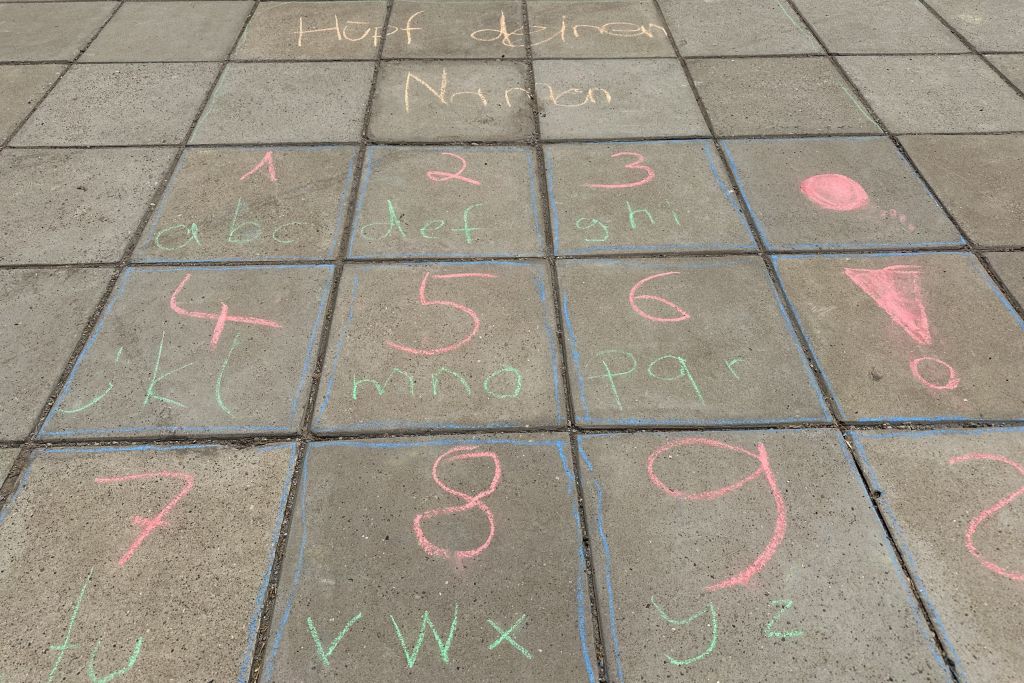 Hüpf deinen
Namen
1 2 3 .
abc def ghi
4 5 6 !
jkl mno pqr
7 8 9 ?
tu vwx yz